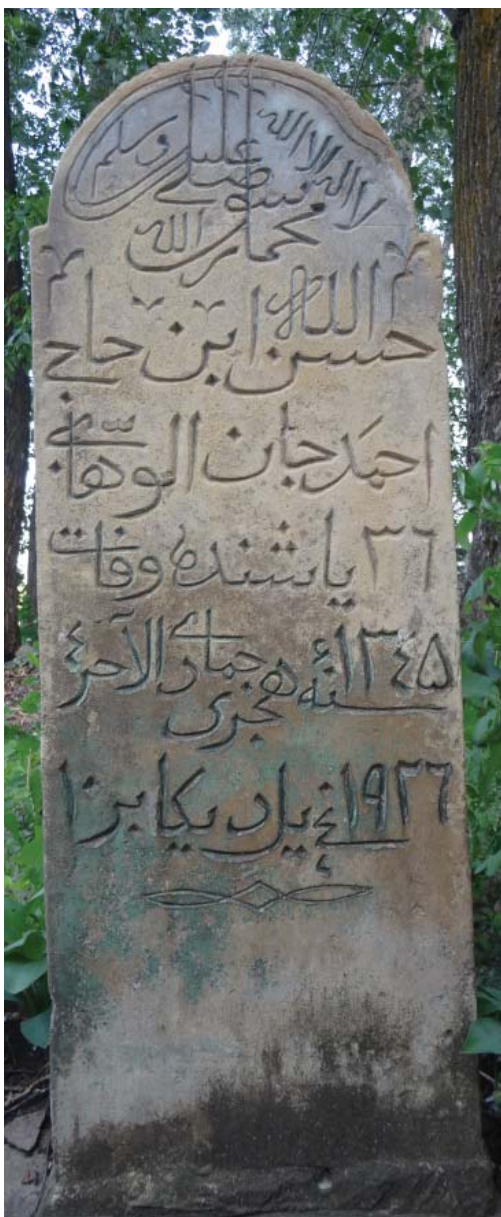 لا اله الا الله
محمد رسول الله صلى عليه وسلم
حسن الله ابن حاجي
احمَد جان الوهّابي
٣٦ ياشنده وفات
١٣٤٥ سنهٔ هجرى جمادى الآخر ٤
١٩٢٦ نچي يل ديكابر ١٠